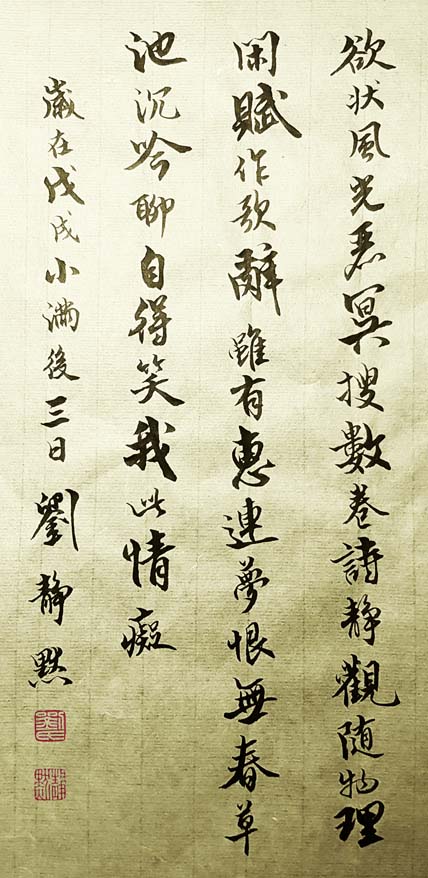 欲状風光冥搜數卷詩静觀随物理
闲賦作歌辭雖有惠連夢恨無春草
池沉吟聊自得笑我此情癡
歲在戊戌小满後三日劉静默
静默